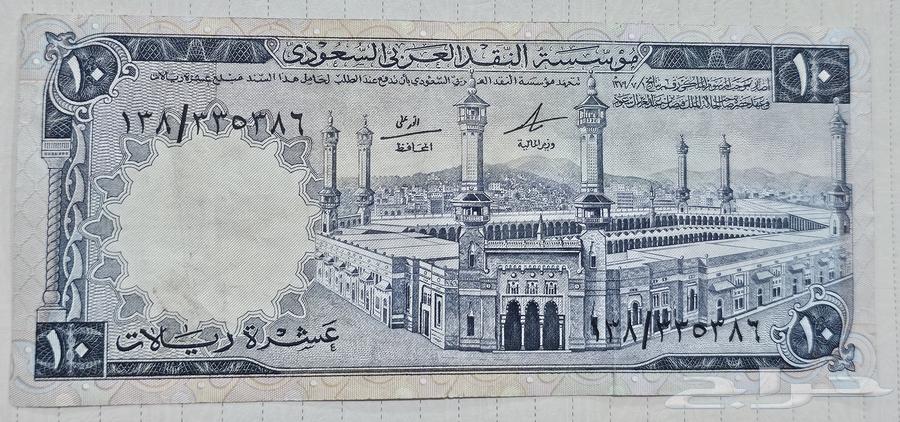 مؤسسة النقد العربي السعودي
١٠
١٠
تتعهد مؤسسة النقد العربي السعودي بأن تدفع عند الطلب لحامل هذا السند مبلغ عشرة ريالات
١٣٨/٣٣٥٣٨٦
وزير المالية
المحافظ
١٣٨/٣٣٥٣٨٦
عشرة ريالات
١٠
١٠
حراج